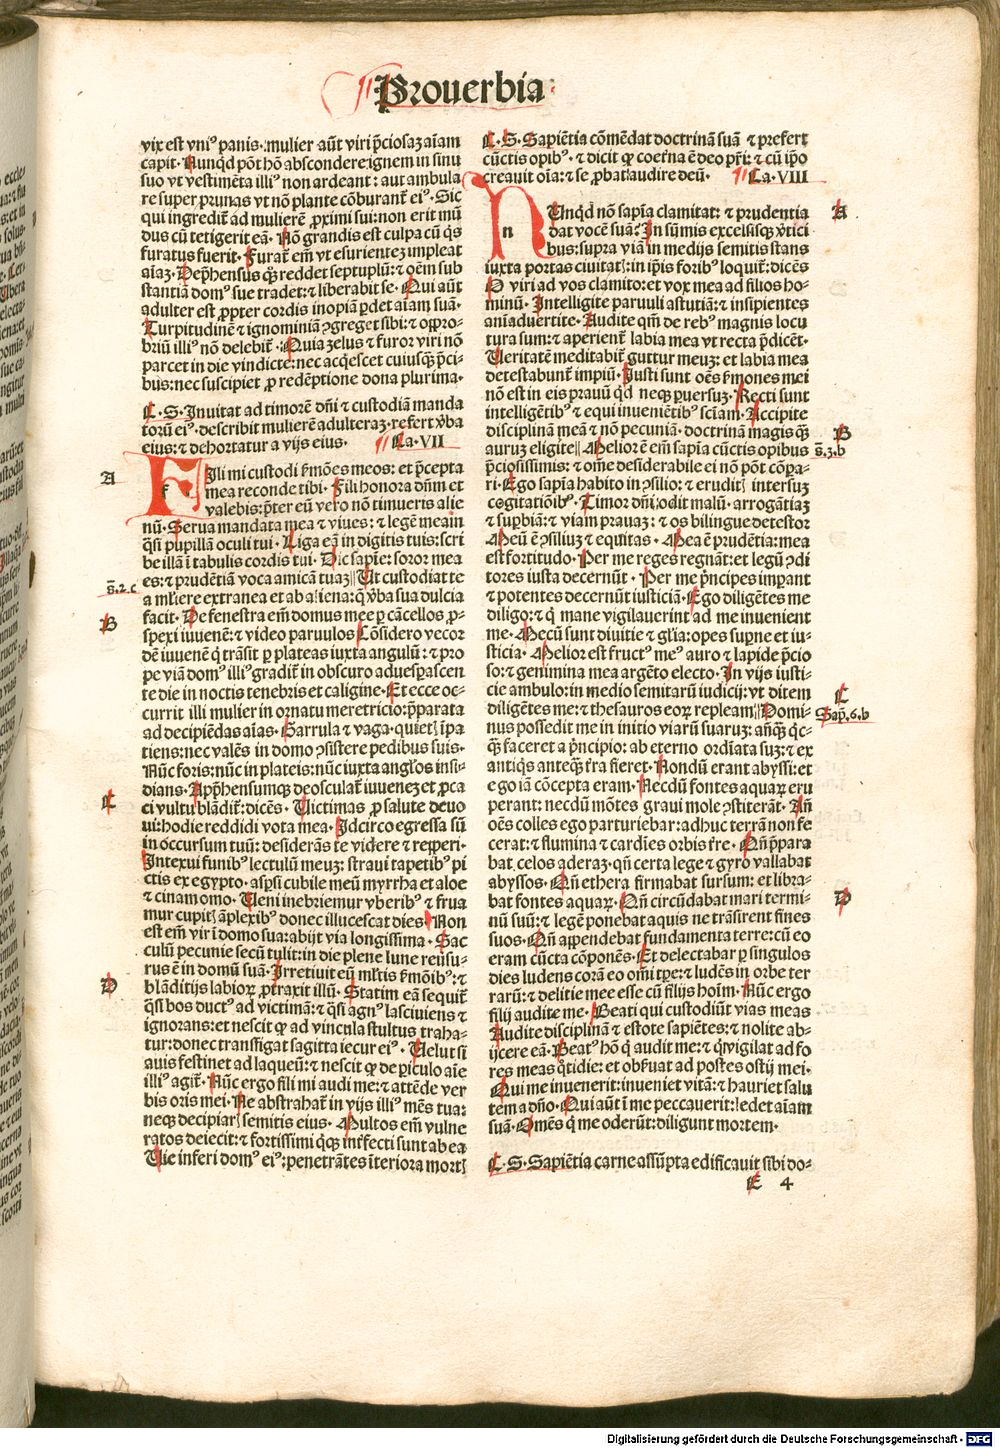 Prouerbia
vix est vniꝰ panis. mulier aūt viri p̄ciosaʒ aīam
capit. Nunqd pōt hō abscondere ignem in sinu
suo vt vestimēta illiꝰ non ardeant: aut ambula
re super prunas vt nō plante cōburant̄ eiꝰ. Sic
qui ingredit̄ ad mulierē ꝓximi sui: non erit mū
dus cū tetigerit eā. Nō grandis est culpa cū q̄s
furatus fuerit. Furat̄ em̄ vt esurientez impleat
aīaʒ. Dep̄hensus qꝫ reddet septuplū: ⁊ oēm sub
stantiā domꝰ sue tradet: ⁊ liberabit se. Qui aūt
adulter est ꝓpter cordis inopiā ꝑdet aīam suā.
Turpitudinē ⁊ ignominiā ꝯgreget sibi: ⁊ oppro-
briū illiꝰ nō delebit̄. Quia zelus ⁊ furor viri nō
parcet in die vindicte: nec acq̇escet cuiusqꝫ p̄ci-
bus: nec suscipiet ꝓ redēptione dona plurima.
C. S. Inuitat ad timorē dn̄i ⁊ custodiā manda
torū ei⁹. describit mulierē adulteraʒ. refert v̄ba
eius: ⁊ dehortatur a vijs eius. Ca. VII
A
f
FIli mi custodi s̄mōes meos: et p̄cepta
mea reconde tibi. Fili honora dn̄m et
valebis: p̄ter eū vero nō timueris alie
nū. Serua mandata mea ⁊ viues: ⁊ legē meam
q̄si pupillā oculi tui. Liga eā in digitis tuis: scri
be illā ī tabulis cordis tui. Dic sapie: soror mea
es: ⁊ prudētiā voca amicā tuaʒ Ut custodiat te
s̄. 2. c
a mliere extranea et ab aliena: q̄ v̄ba sua dulcia
facit. De fenestra em̄ domus mee ꝑ cācellos ꝓ-
B
spexi iuuenē: ⁊ video paruulos Cōsidero vecor
dē iuuenē q̇ trāsit ꝑ plateas iuxta angulū: ⁊ pro
pe viā domꝰ illiꝰ gradit̄ in obscuro aduesꝑascen
te die in noctis tenebris et caligine. Et ecce oc-
currit illi mulier in ornatu meretricio: p̄parata
ad decipiēdas aīas. Garrula ⁊ vaga. quietꝭ īpa
tiens: nec valēs in domo ꝯsistere pedibus suis.
Nūc foris: nūc in plateis: nūc iuxta angl̄os insi-
dians. App̄hensumqꝫ deosculat̄ iuuenez et ꝓca
C
ci vultu blādit̄: dicēs. Uictimas ꝓ salute deuo
ui: hodie reddidi vota mea. Idcirco egressa sū
in occursum tuū: desiderās te videre ⁊ reꝑeri.
Intexui funibꝰ lectulū meuz: straui tapetibꝰ pi
ctis ex egypto. asꝑsi cubile meū myrrha et aloe
⁊ cinamomo. Ueni inebriemur vberibꝰ ⁊ frua
mur cupitꝭ āplexibꝰ donec illucescat dies. Non
est em̄ vir ī domo sua: abijt via longissima. Sac
culū pecunie secū tulit: in die plene lune reūsu-
rus ē in domū suā. Irretiuit eū mltis s̄mōibꝰ: ⁊
D
blāditijs labioꝝ ꝓtraxit illū. Statim eā seq̇uit̄
q̄si bos ductꝰ ad victimā: ⁊ q̄si agnꝰ lasciuiens ⁊
ignorans: et nescit qꝙ ad vincula stultus traha-
tur: donec transfigat sagitta iecur eiꝰ. Uelut si
auis festinet ad laqueū: ⁊ nescit ꝙ de ꝑiculo aīe
illiꝰ agit̄. Nūc ergo fili mi audi me: ⁊ attēde ver
bis oris mei. Ne abstrahat̄ in vijs illiꝰ mēs tua:
neqꝫ decipiarꝭ semitis eius. Multos em̄ vulne
ratos deiecit: ⁊ fortissimi q̇qꝫ int̄fecti sunt ab ea
Uie inferi domꝰ eiꝰ: penetrātes īteriora mortꝭ
C. S. Sapiētia cōmēdat doctrinā suā ⁊ prefert
cūctis opibꝰ. ⁊ dicit ꝙ coet̄na ē deo pr̄i: ⁊ cū ip̄o
creauit oīa: ⁊ se ꝓbat audire deū. Ca. VIII
A
n
NUnqd nō sapīa clamitat: ⁊ prudentia
dat vocē suā? In sūmis excelsisqꝫ v̄tici
bus: supra viā in medijs semitis stans
iuxta portas ciuitatꝭ: in ip̄is foribꝰ loquit̄: dicēs
O viri ad vos clamito: et vox mea ad filios ho-
minū. Intelligite paruuli astutiā: ⁊ insipientes
anīaduertite. Audite qm̄ de rebꝰ magnis locu
tura sum: ⁊ aperient̄ labia mea vt recta p̄dicēt.
Ueritatē meditabit̄ guttur meuz: et labia mea
detestabunt̄ impiū. Iusti sunt oēs s̄mones mei
nō est in eis prauū qd̄ neqꝫ ꝑuersuʒ. Recti sunt
intelligētibꝰ ⁊ equi inueniētibꝰ sciāʒ. Accipite
disciplinā meā ⁊ nō pecuniā. doctrinā magis qꝫ̄
B
auruʒ eligite Melior ē em̄ sapīa cūctis opibus
s̄. 3. b
p̄ciosissimis: ⁊ om̄e desiderabile ei nō pōt cōpa-
ri. Ego sapīa habito in ꝯsilio: ⁊ eruditꝭ intersuʒ
cogitatiōibꝰ. Timor dn̄i: odit malū. arrogātiaʒ
⁊ suꝑbiā: ⁊ viam prauaʒ: ⁊ os bilingue detestor
Meū ē ꝯsiliuʒ ⁊ equitas. Mea ē prudētia: mea
est fortitudo. Per me reges regnāt: et legū ꝯdi
tores iusta decernūt. Per me p̄ncipes imꝑant
⁊ potentes decernūt iusticiā. Ego diligētes me
diligo: ⁊ q̇ mane vigilauerint ad me inuenient
me. Mecū sunt diuitie ⁊ gl̄ia: opes suꝑne et iu-
sticia. Melior est fructꝰ meꝰ auro ⁊ lapide p̄cio
so: ⁊ genimina mea argēto electo. In vijs iusti-
cie ambulo: in medio semitarū iudicij: vt ditem
C
diligētes me: ⁊ thesauros eoꝝ repleam Domi-
Sap̄. 6. b
nus possedit me in initio viarū suaruʒ: añqꝫ q̇c-
qꝫ̄ faceret a p̄ncipio: ab eterno ordīata suʒ: ⁊ ex
antiq̇s anteqꝫ̄ t̄ra fieret. Nondū erant abyssi: et
ego iā cōcepta eram. Necdū fontes aquaꝝ eru
perant: necdū mōtes graui mole ꝯstiterāt. Añ
oēs colles ego parturiebar: adhuc terrā non fe
cerat: ⁊ flumina ⁊ cardīes orbis t̄re. Qn̄ p̄para
bat celos aderaʒ. qn̄ certa lege ⁊ gyro vallabat
abyssos. Qn̄ ethera firmabat sursum: et libra-
D
bat fontes aquaꝝ. Qn̄ circūdabat mari termi-
nū suū: ⁊ legē ponebat aquis ne trāsirent fines
suos. Qn̄ appendebat fundamenta terre: cū eo
eram cūcta cōponēs. Et delectabar ꝑ singulos
dies ludens corā eo omī tꝑe: ⁊ ludēs in orbe ter
rarū: ⁊ delitie mee esse cū filijs hoīm. Nūc ergo
filij audite me. Beati qui custodiūt vias meas
Audite disciplinā ⁊ estote sapiētes: ⁊ nolite ab-
ijcere eā. Beatꝰ hō q̇ audit me: ⁊ q̇ vigilat ad fo
res meas q̊tidie: et obs̄uat ad postes ostij mei.
Qui me inuenerit: inueniet vitā: ⁊ hauriet salu
tem a dño. Qui aūt ī me peccauerit: ledet aīam
suā. Omēs q̇ me oderūt: diligunt mortem.
C. S. Sapiētia carne assūpta edificauit sibi do-
E 4
Digitalisierung gefördert durch die Deutsche Forschungsgemeinschaft - DFG